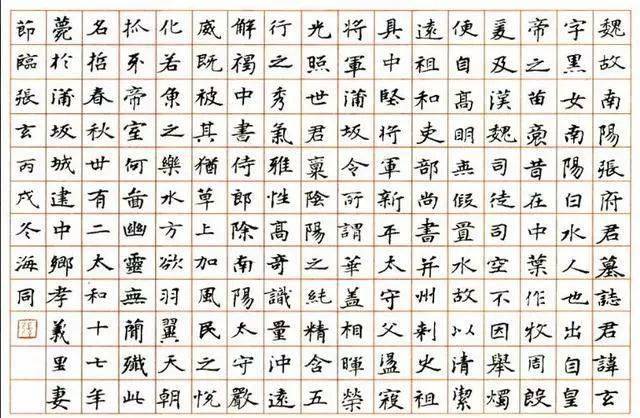 魏故南陽張府君墓誌君諱玄
字黑女南陽白水人也出自皇
帝之苗裔昔在中葉作牧周殷
爰及漢魏司徒司空不因舉燭
便自高明無假置水故以清潔
遠祖和吏部尚書并州刺史祖
具中堅將軍新平太守父盪寇
將軍蒲坂令所謂華蓋相暉榮
光照世君稟陰陽之純精含五
行之秀氣雅性高奇識量沖遠
解褐中書侍郎除南陽太守嚴
威既被其猶草上加風民之悅
化若魚之樂水方欲羽翼天朝
抓牙帝室何啚幽靈無簡殲此
名哲春秋卅有二太和十七年
薨於蒲坂城建中鄉孝義里妻
節臨張玄丙戌冬海同
張